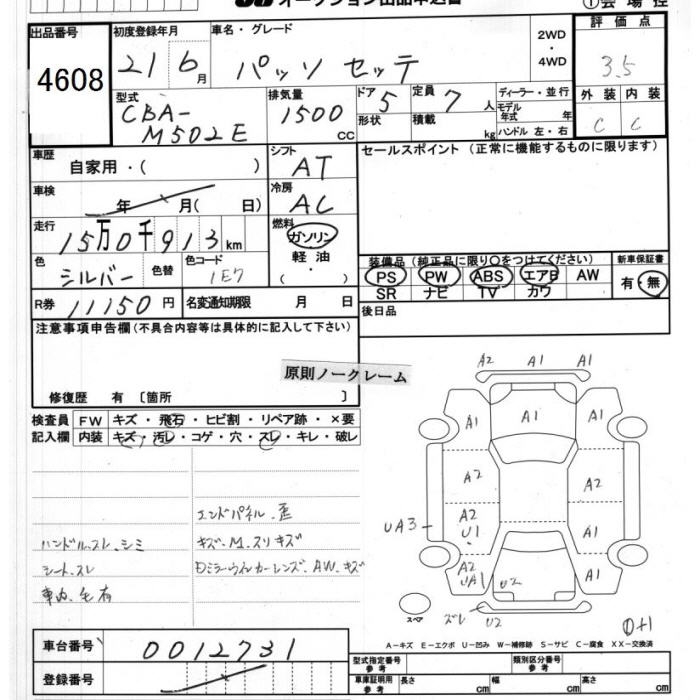 オークション出品申込書
①会場控
出品番号
4608
初度登録年月
21 6月
車名・グレード
パッソ セッテ
2WD・4WD
評価点
3.5
外装 内装
C C
型式
CBA-M502E
排気量
1500 CC
ドア 5
形状
定員 7 人
積載 kg
ディーラー・並行
モデル年式 年
ハンドル 左・右
車歴
自家用・( )
シフト
AT
セールスポイント (正常に機能するものに限ります)
車検
年 月( 日)
冷房
AC
走行
15万0千913km
燃料
ガソリン
軽油
( ・ )
色
シルバー
色替
色コード
1E7
装備品 (純正品に限り○をつけてください)
PS PW ABS エアB AW
SR ナビ TV カワ
新車保証書
有・無
R券
11150円
名変通知期限 月 日
後日品
注意事項申告欄 (不具合内容等は具体的に記入して下さい)
原則ノークレーム
修復歴 有 〔箇所 〕
検査員記入欄
FW キズ・飛石・ヒビ割・リペア跡・×要
内装 キズ・汚レ・コゲ・穴・スレ・キレ・破レ
エンドパネル.歪
ハンドル.スレ.シミ
キズ.M.スリキズ
シート.スレ
Dミラーウィンカーレンズ.AW.キズ
車内.毛有
A2 A1 A1
A1 A1 A1
A2 A2
UA3 A2 U1 A1
A2 UA1 U2 A1
スペア
ズレ U2
D+1
A－キズ E－エクボ U－凹み W－補修跡 S－サビ C－腐食 XX－交換済
車台番号
0012731
登録番号
型式指定番号 参考
類別区分番号 参考
車庫証明用 参考
長さ cm 幅 cm 高さ cm